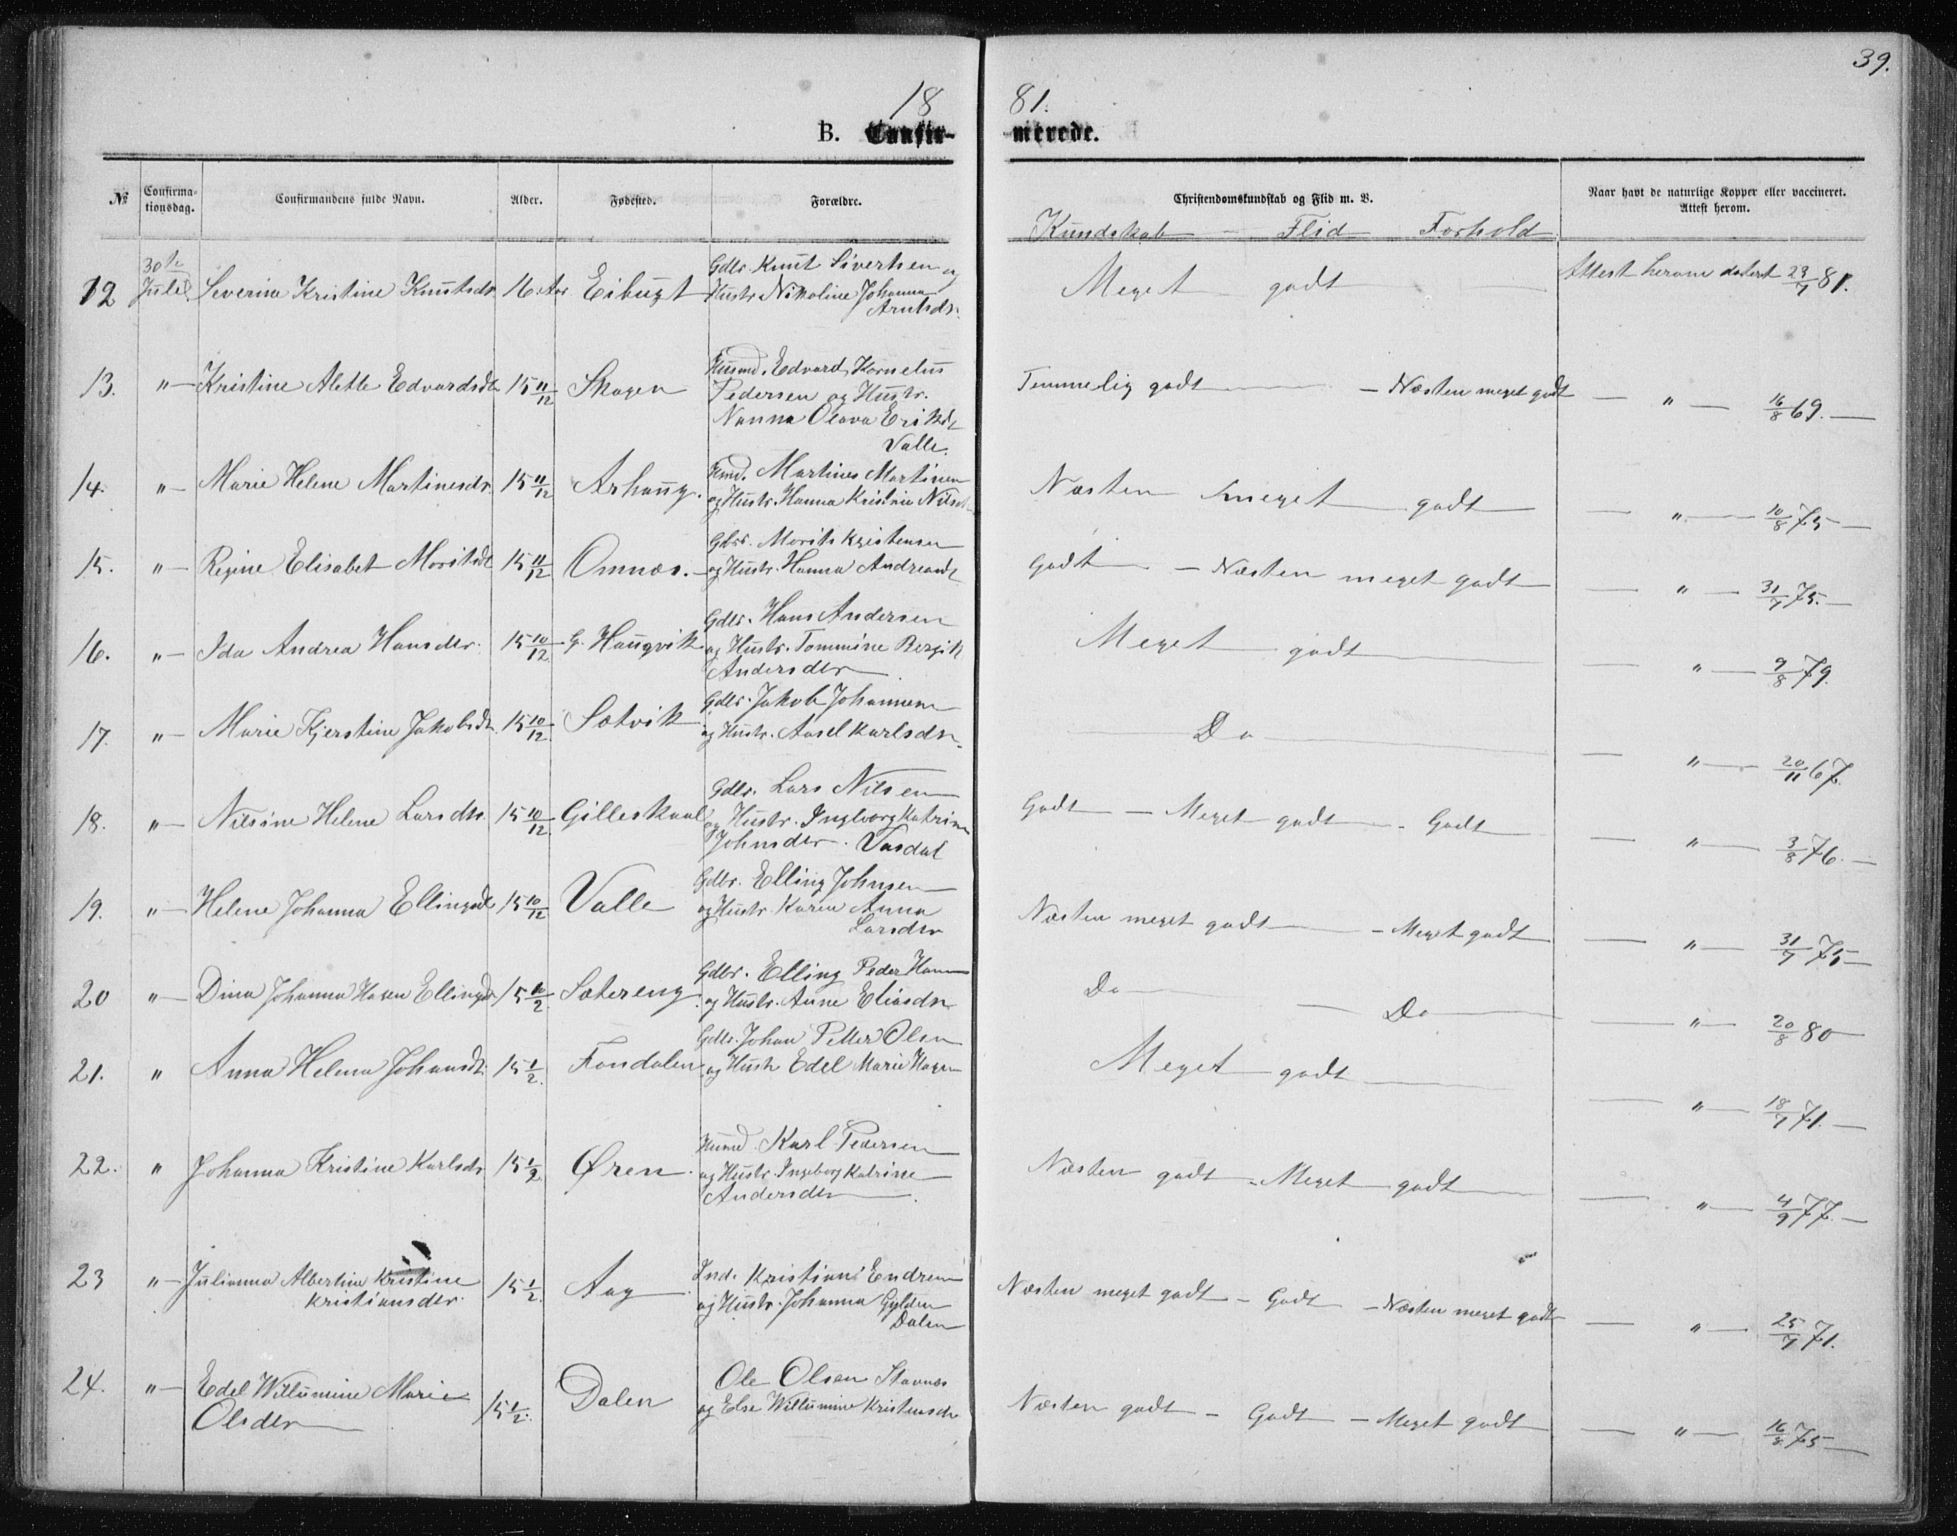 39.
18 81.
B. Confir- merede.
№ Confirma-tionsdag. Confirmandens fulde Navn. Alder. Fødested. Forældre. Christendomskundskab og Flid m. V. Naar havt de naturlige Kopper eller vaccineret. Attest herom.
Kundskab - Flid Forhold
12 30te Juli Severine Kristine Knutsdr. 16 Aar Eibugt
Gdbr. Knut Sivertsen og
Hustr. Nikoline Johanna
Arntsdr.
Meget godt
Attest herom datert 23/7 81.
13. "- Kristine Alette Edvardsdtr 15 11/12 Skagen
Husmd. Edvard Kornelius
Pedersen og Hustr.
Nanna Olava Eriksdtr
Valle.
Temmelig godt - Næsten meget godt
" 16/8 69.
14. "- Marie Helene Martinesdr. 15 11/12 Arhaug.
Husmd. Martines Martinsen
og Hustr. Hanna Kristine Nilsdtr
Næsten meget godt
" 10/8 75
15. "- Regine Elisabet Moritsdtr 15 11/12 Omnæs.
Gdbr. Morits Kristensen
og Hustr. Hanna Andreasdtr
Godt - Næsten meget godt
" 31/7 75.
16. "- Ida Andrea Hansdtr. 15 10/12 G. Haugvik
Gdbr. Hans Andersen
og Hustr. Tommine Bergit
Andersdtr
Meget godt
" 9/8 79.
17. "- Marie Kjerstine Jakobsdtr. 15 10/12 Sætvik
Gdbr. Jakob Johannesen
og Hustr. Aasel Karlsdtr.
Do
" 20/11 67.
18. "- Nilsine Helene Larsdtr. 15 10/12 Gilleskaal
Gdbr. Lars Nilsen
og Hustr. Ingeborg Katrine
Johnsdtr. Vasdal
Godt - Meget godt - Godt
" 3/8 76.
19. "- Helene Johanna Ellingsdtr 15 10/12 Valle
Gdbr. Elling Johnsen
og Hustr. Karen Anna
Larsdtr
Næsten meget godt - Meget godt
" 31/7 75
20 "- Dina Johanna Hasen Ellingsdtr 15 1/2 Sætereng
Gdbr. Elling Peder Hansen
og Hustr. Anne Eliasdtr
Do - Do
" 20/8 80
21. " Anna Helena Johansdtr. 15 1/2. Fondalen
Gdbr. Johan Petter Olsen
og Hustr Edel Marie Hagen
Meget godt
" 18/7 71.
22. " Johanna Kristine Karlsdtr 15 1/2 Øren
Husmd. Karl Pedersen
og Hustr. Ingeborg Katrine
Andersdtr
Næsten godt - Meget godt
" 4/9 77.
23 "- Julianna Albertine Kristine
Kristiansdtr. 15 1/2. Aag
Ind. Kristian Endresen
og Hustr. Johanna Gylden
Dalen
Næsten meget godt - Godt - Næsten meget godt
" 25/7 71.
24. "- Edel Willumine Marie
Olsdtr 15 1/2. Dalen
Ole Olsen Stavnes
og Else Willumine Kristensdtr
Næsten godt - Godt - Meget godt
" 16/8 75